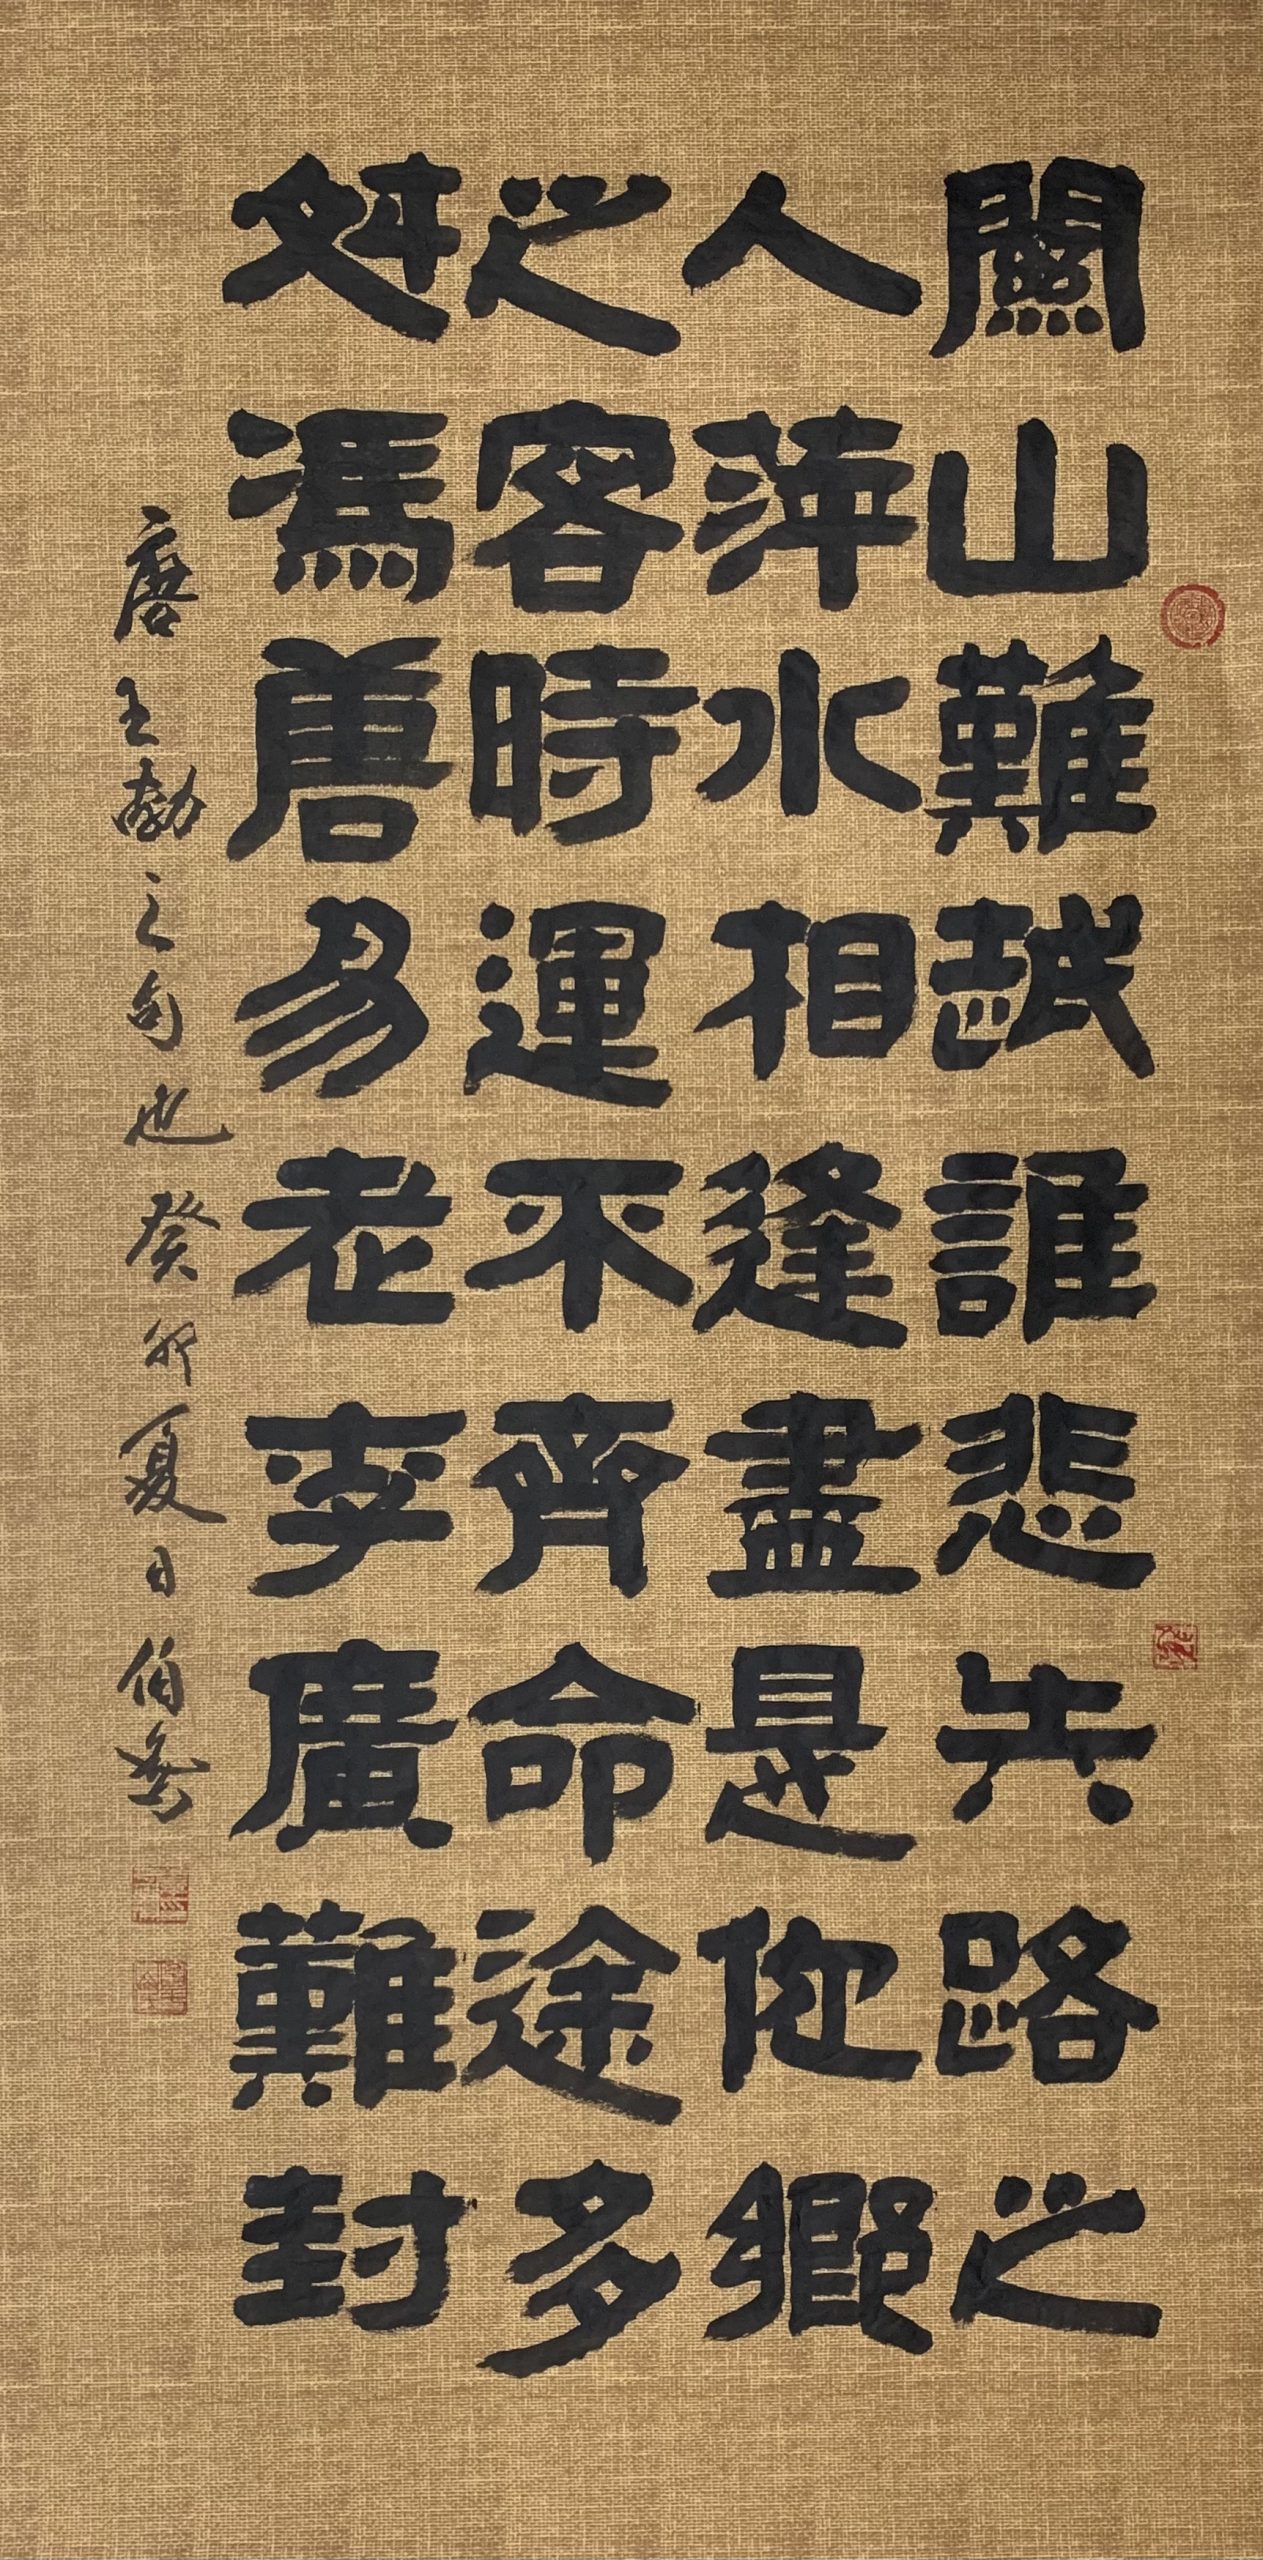 關山難越誰悲失路之
人萍水相逢盡是他鄉
之客時運不齊命途多
舛馮唐易老李廣難封
唐王勃之句也 癸卯夏日伯